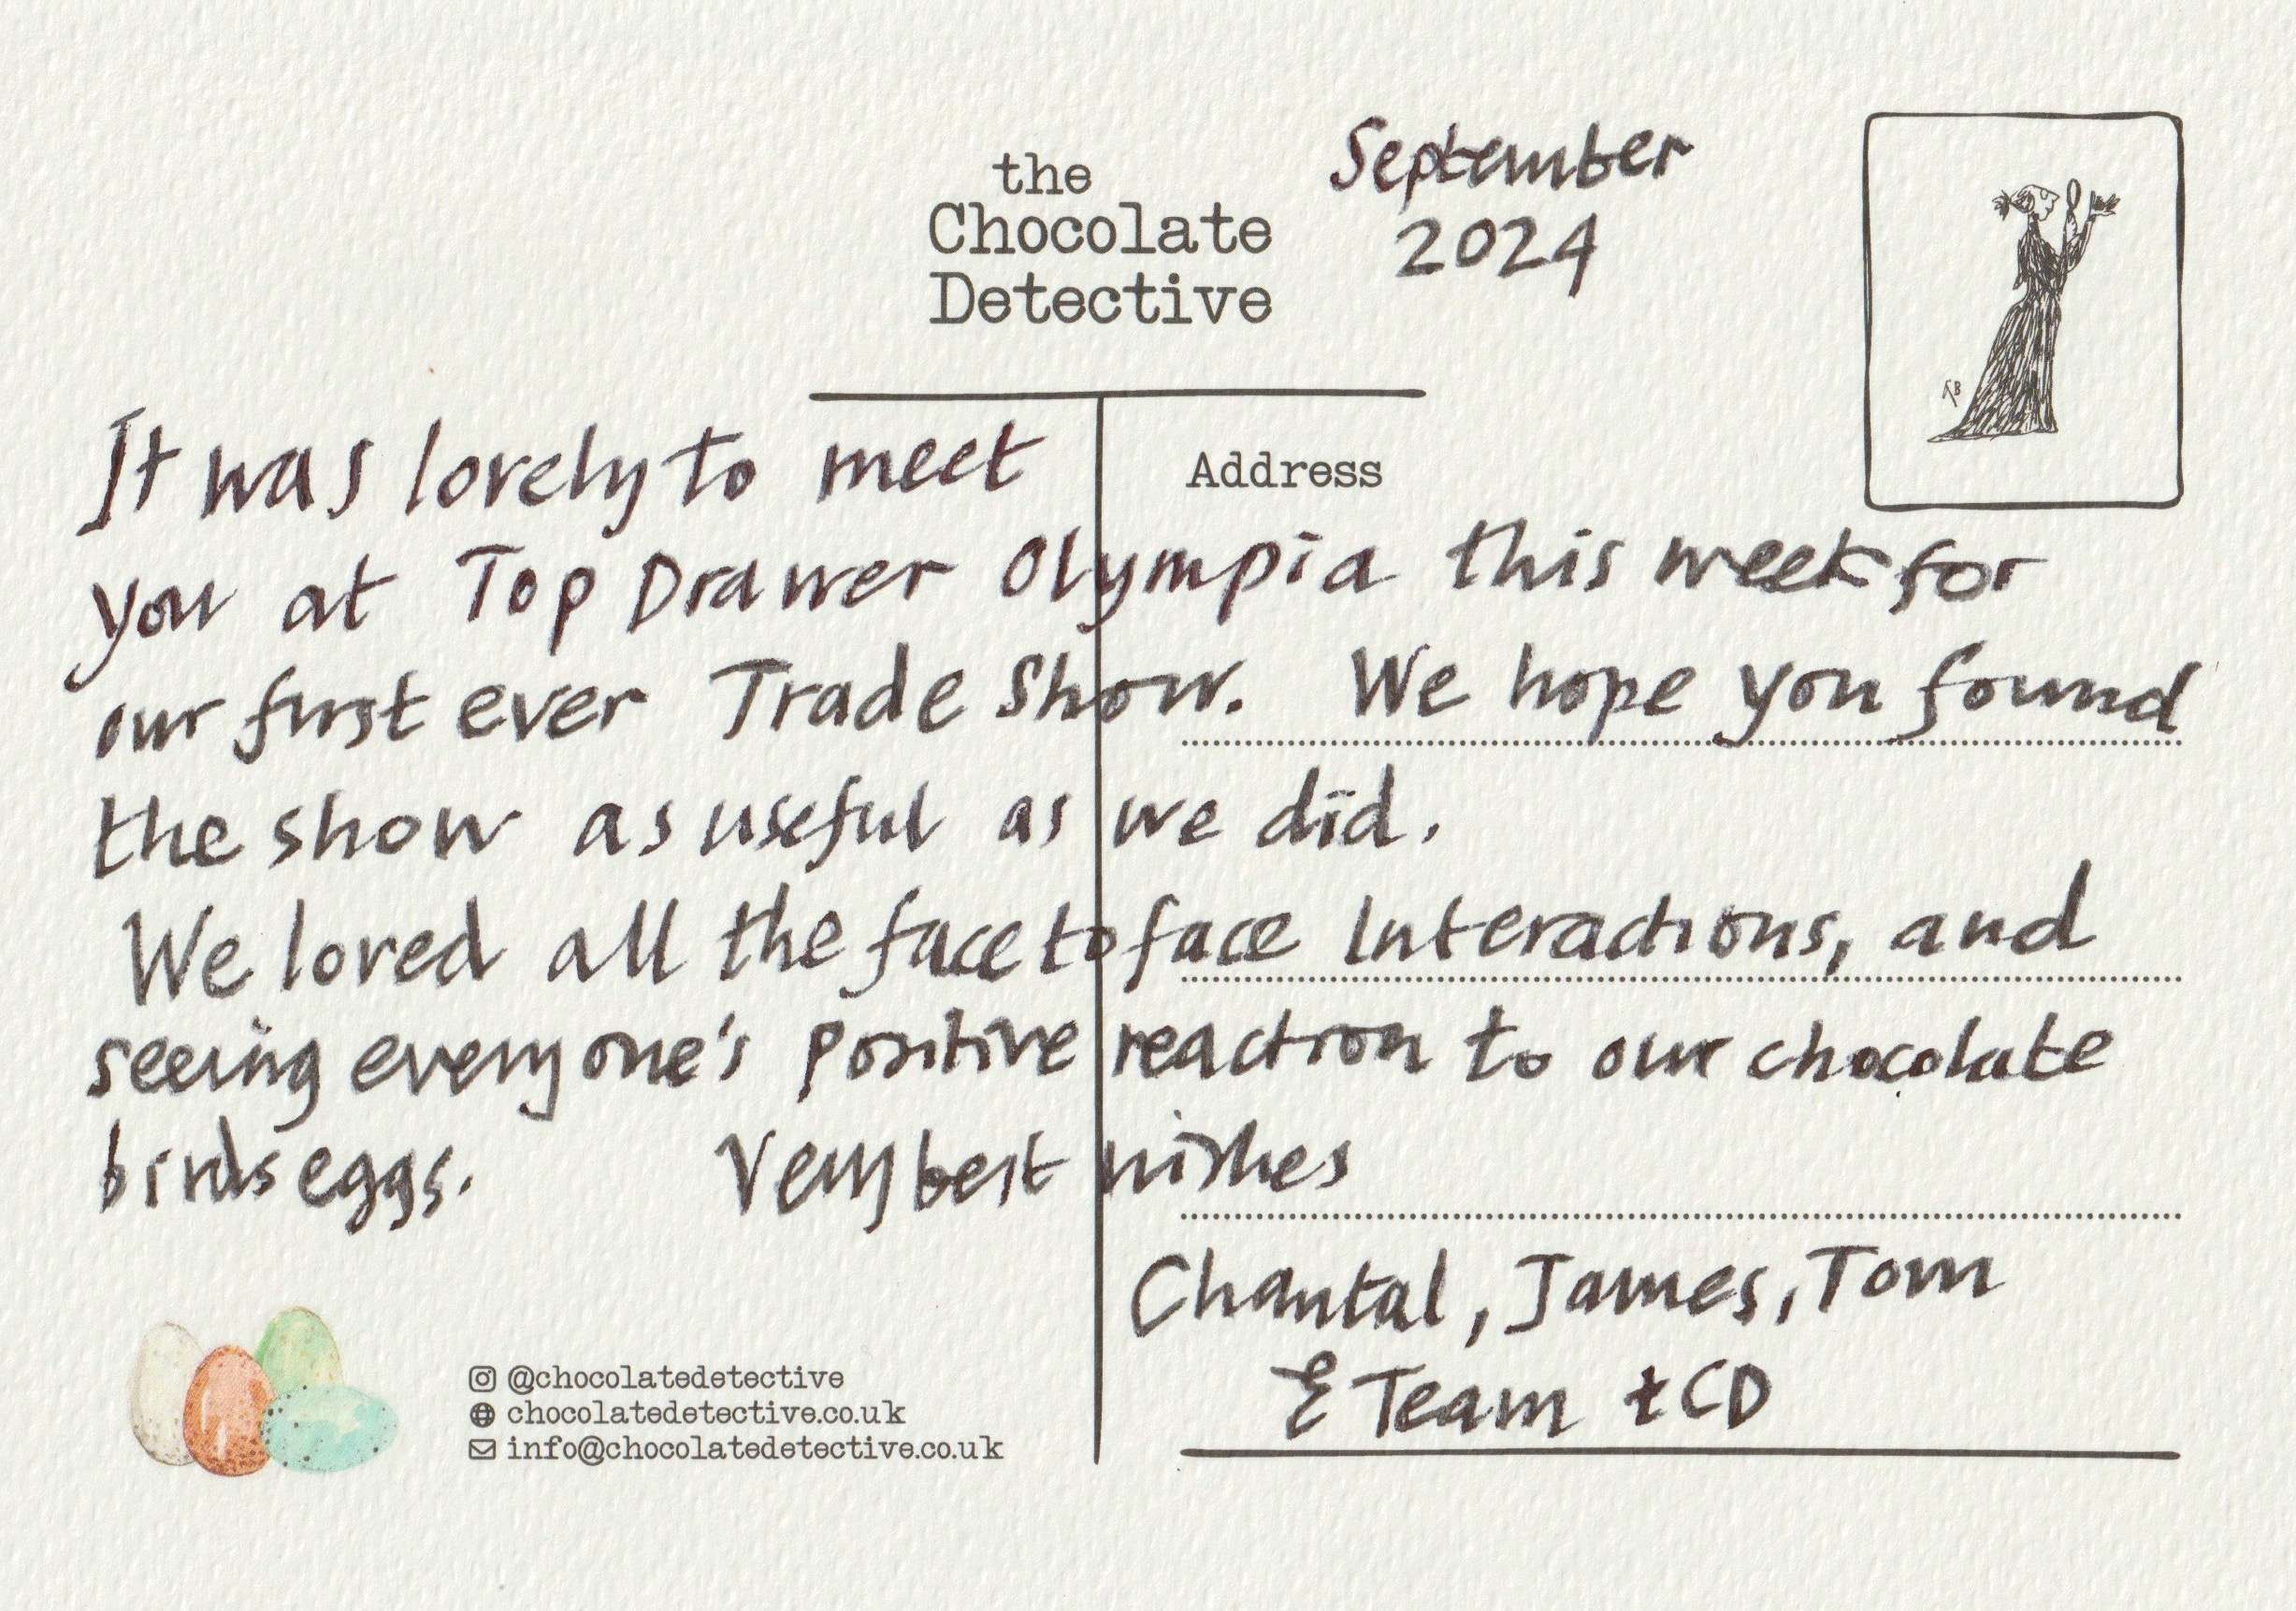 the
Chocolate
Detective
September
2024
Address
It was lovely to meet
you at Top Drawer Olympia this week for
our first ever Trade Show. We hope you found
the show as useful as we did.
We loved all the face to face Interactions, and
seeing everyone's positive reaction to our chocolate
birds eggs. Very best wishes
Chantal, James, Tom
& Team tCD
@chocolatedetective
chocolatedetective.co.uk
info@chocolatedetective.co.uk